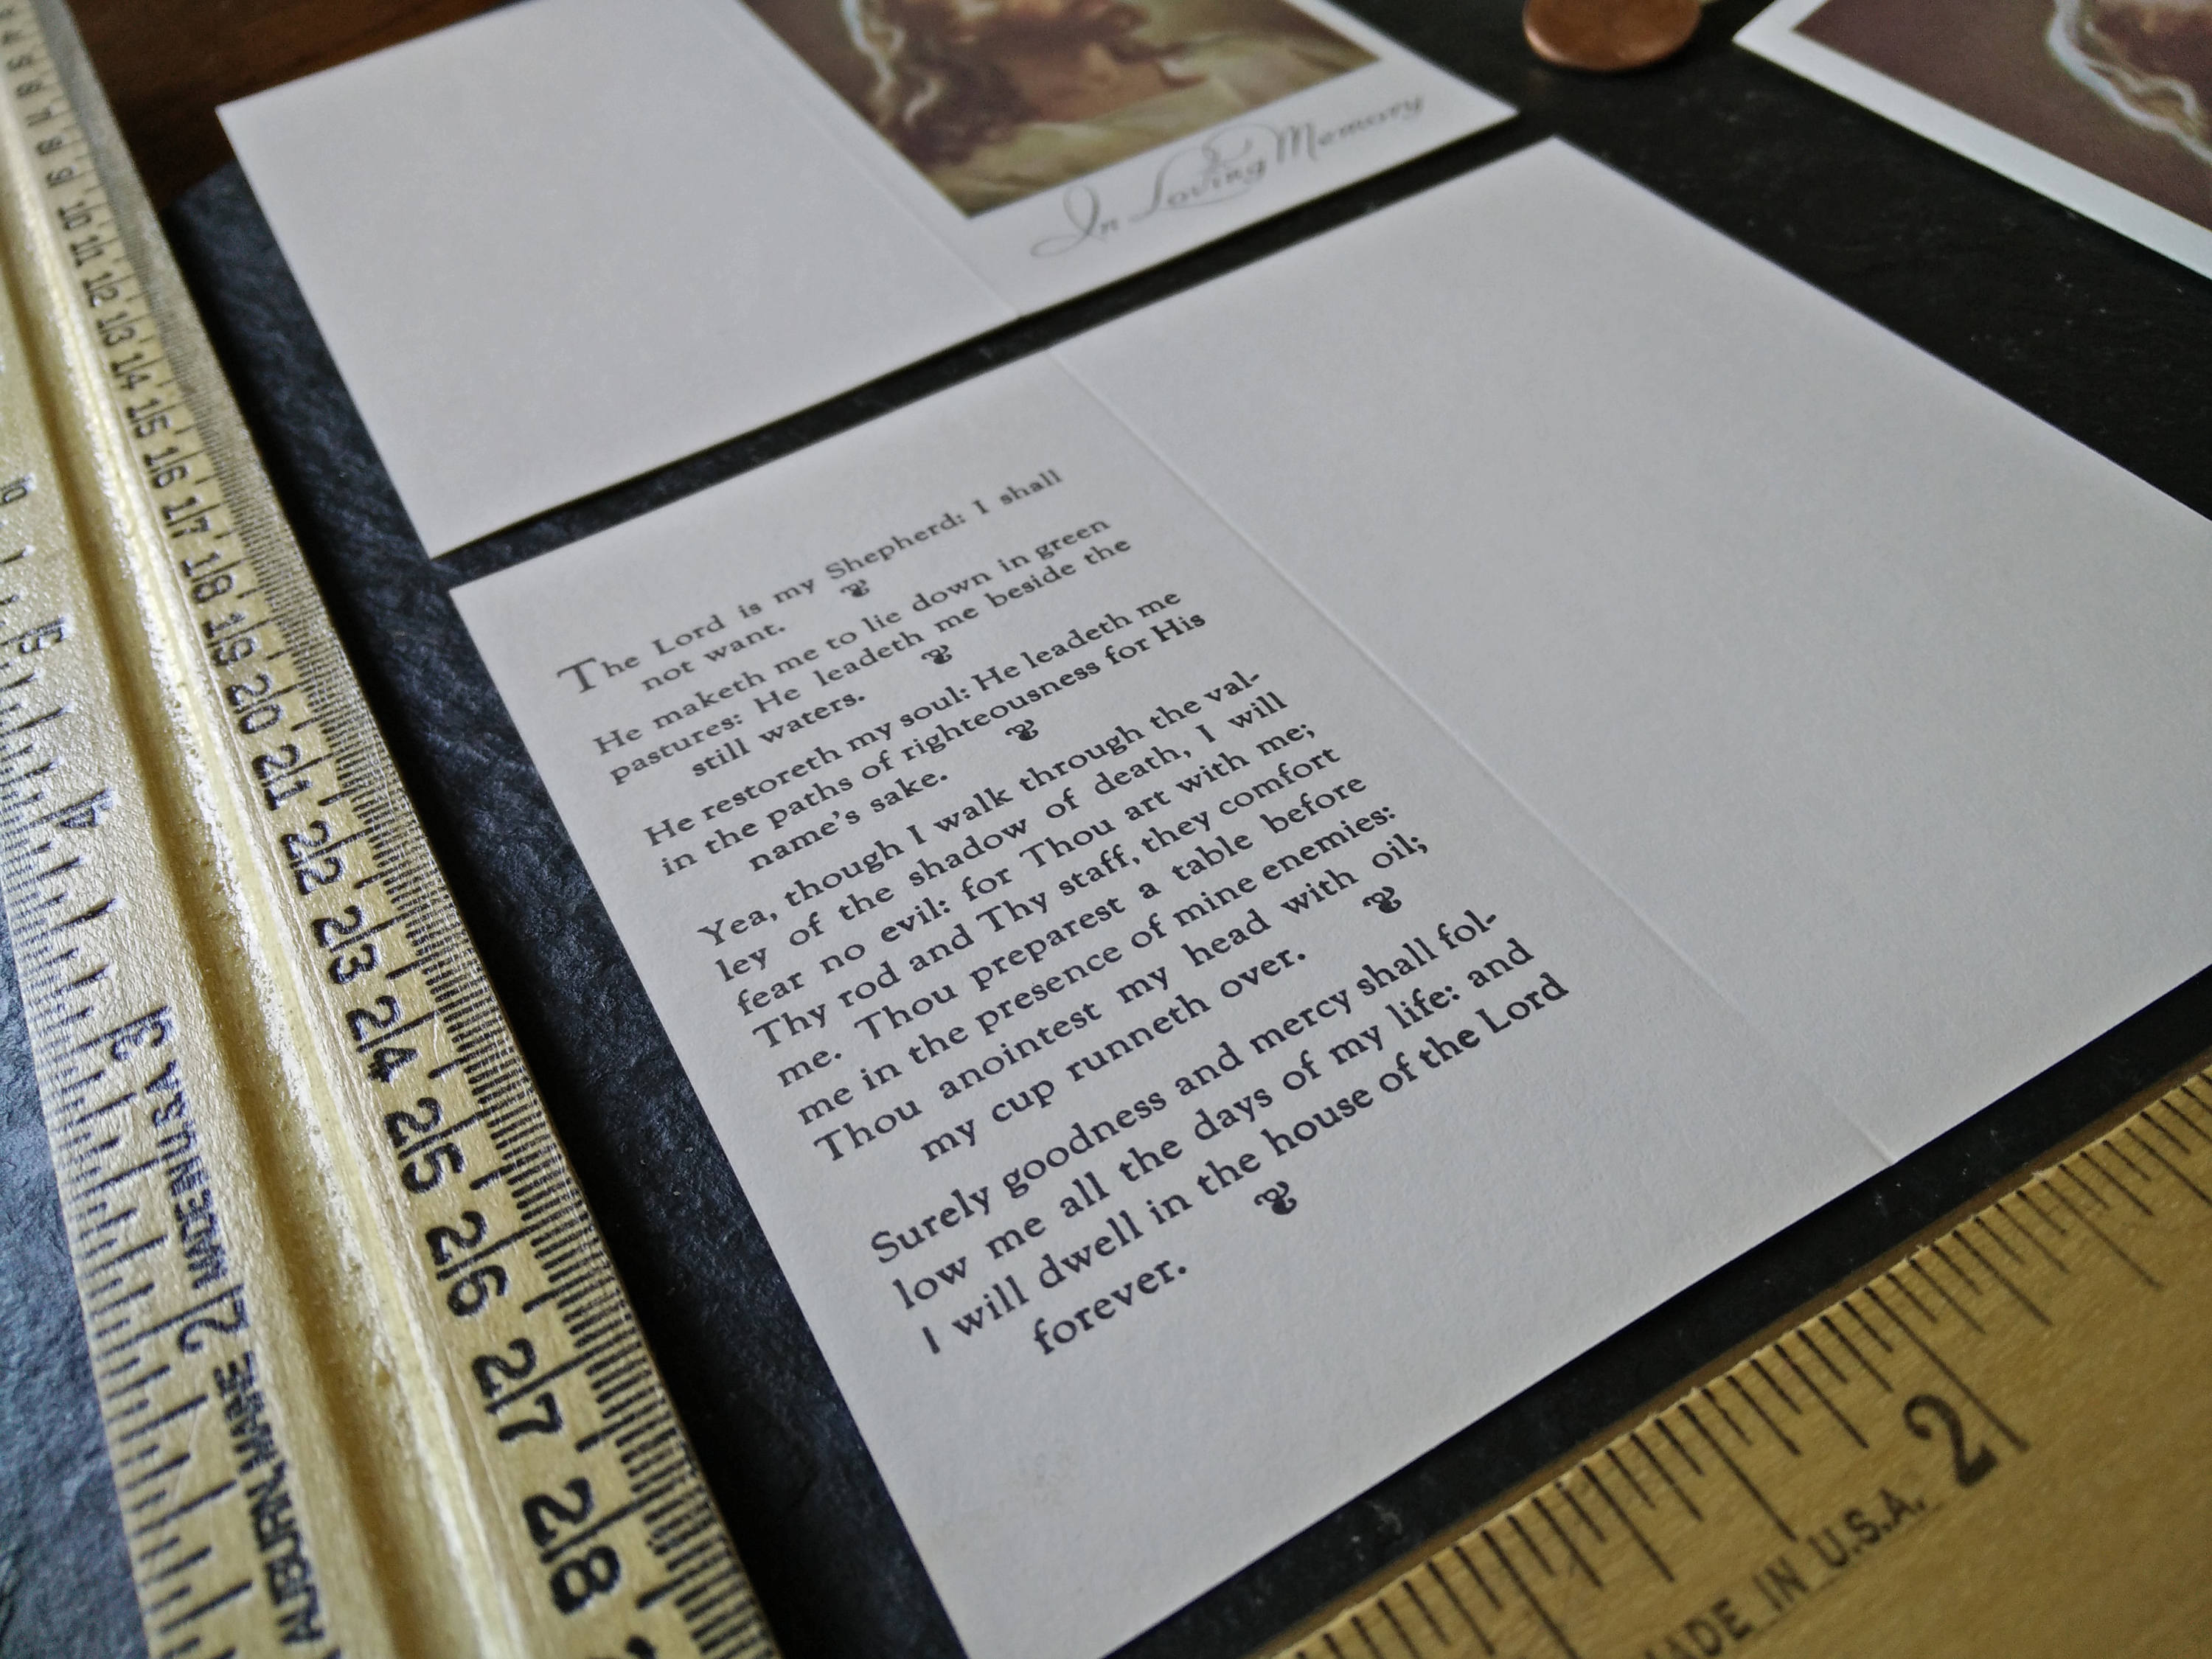 In Loving Memory
The Lord is my Shepherd: I shall
not want.
He maketh me to lie down in green
pastures: He leadeth me beside the
still waters.
He restoreth my soul: He leadeth me
in the paths of righteousness for His
name's sake.
Yea, though I walk through the val-
ley of the shadow of death, I will
fear no evil: for Thou art with me;
Thy rod and Thy staff, they comfort
me. Thou preparest a table before
me in the presence of mine enemies:
Thou anointest my head with oil;
my cup runneth over.
Surely goodness and mercy shall fol-
low me all the days of my life: and
I will dwell in the house of the Lord
forever.
10 11 12 13 14 15 16 17 18 19 20 21 22 23 24 25 26 27 28
4 3 2
MADE IN U.S.A.
AUBURN, MAINE
2
MADE IN U.S.A.